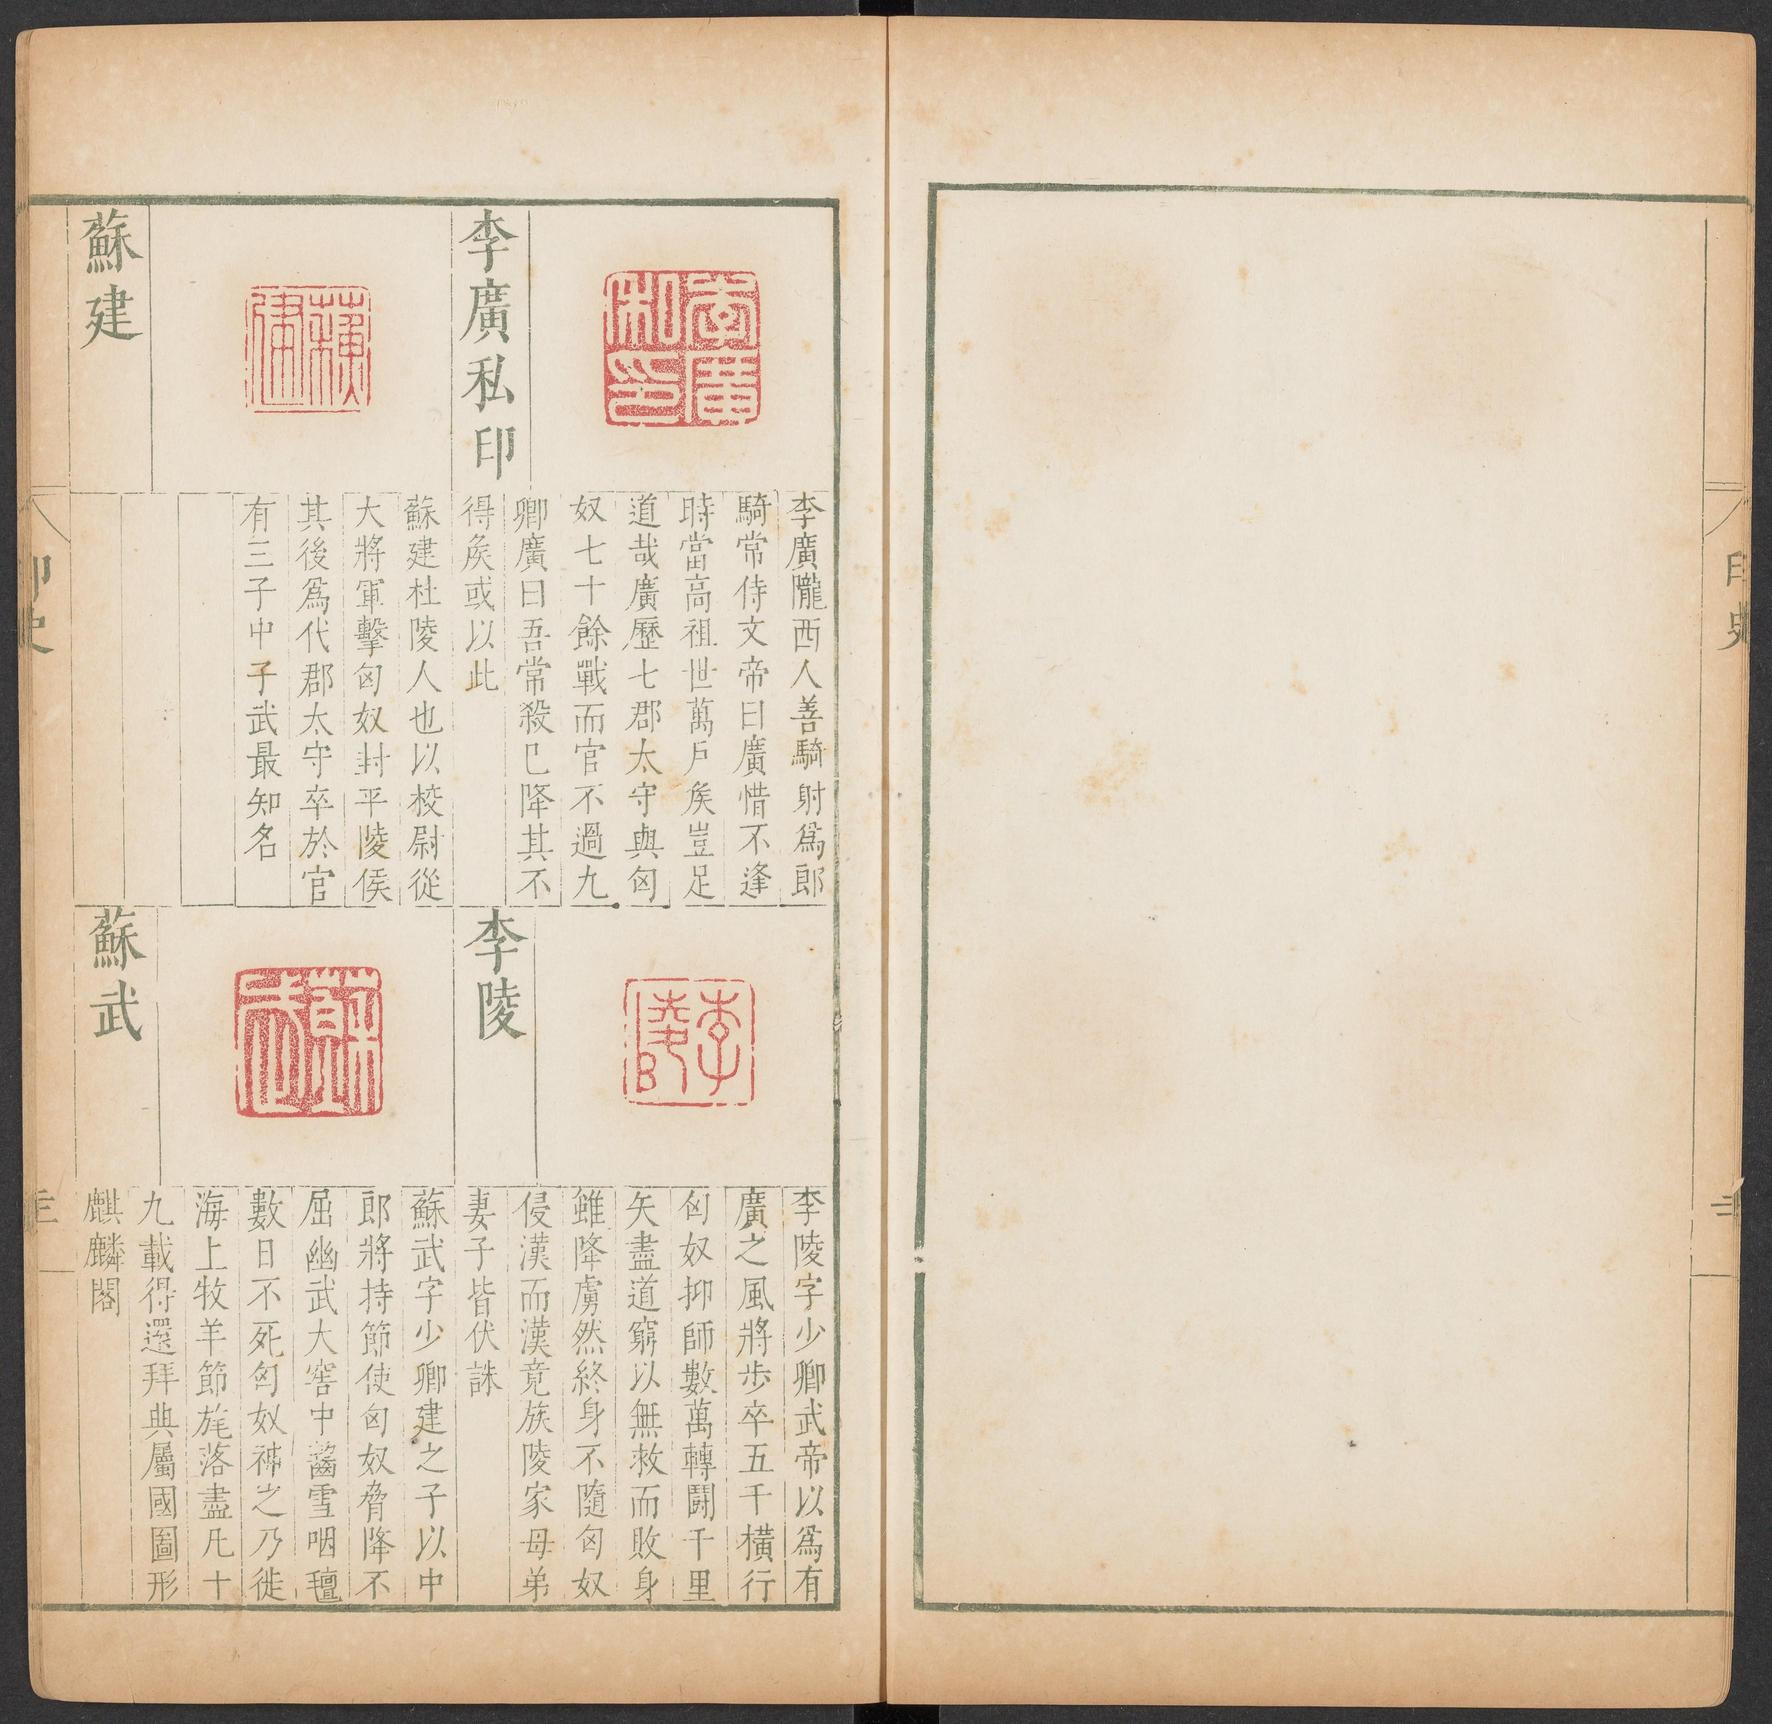 李廣私印
李廣隴西人善騎射爲郎
騎常侍文帝曰廣惜不逢
時當高祖世萬戶矦豈足
道哉廣歷七郡太守與匈
奴七十餘戰而官不過九
卿廣曰吾常殺已降其不
得矦或以此
蘇建
蘇建杜陵人也以校尉從
大將軍擊匈奴封平陵侯
其後爲代郡太守卒於官
有三子中子武最知名
李陵
李陵字少卿武帝以爲有
廣之風將步卒五千橫行
匈奴抑師數萬轉鬭千里
矢盡道窮以無救而敗身
雖降虜然終身不隨匈奴
侵漢而漢竟族陵家母弟
妻子皆伏誅
蘇武
蘇武字少卿建之子以中
郎將持節使匈奴脅降不
屈幽武大窖中齧雪咽氊
數日不死匈奴神之乃徙
海上牧羊節旄落盡凡十
九載得還拜典屬國圖形
麒麟閣
印史